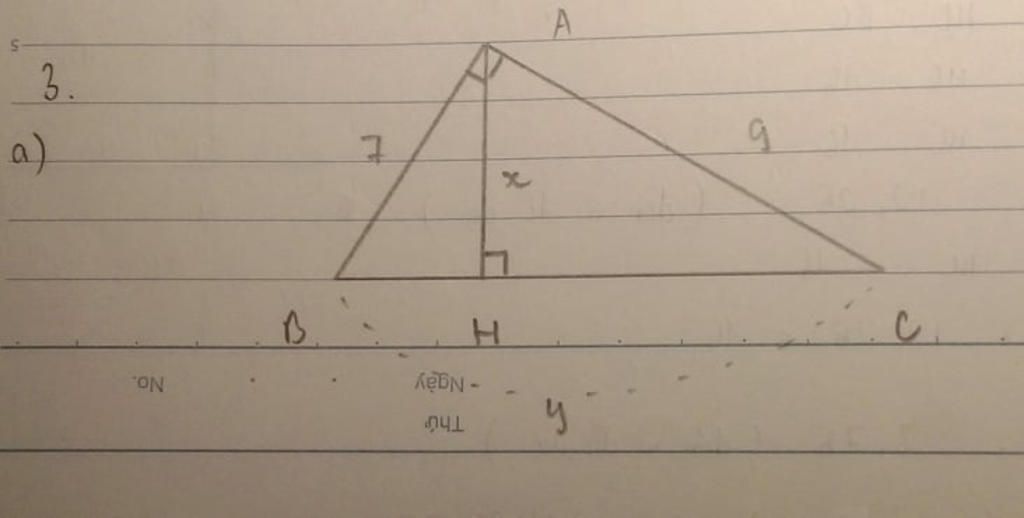 A
3.
a)
7
9
x
B
H
C
No.
Ngày
y
Thứ